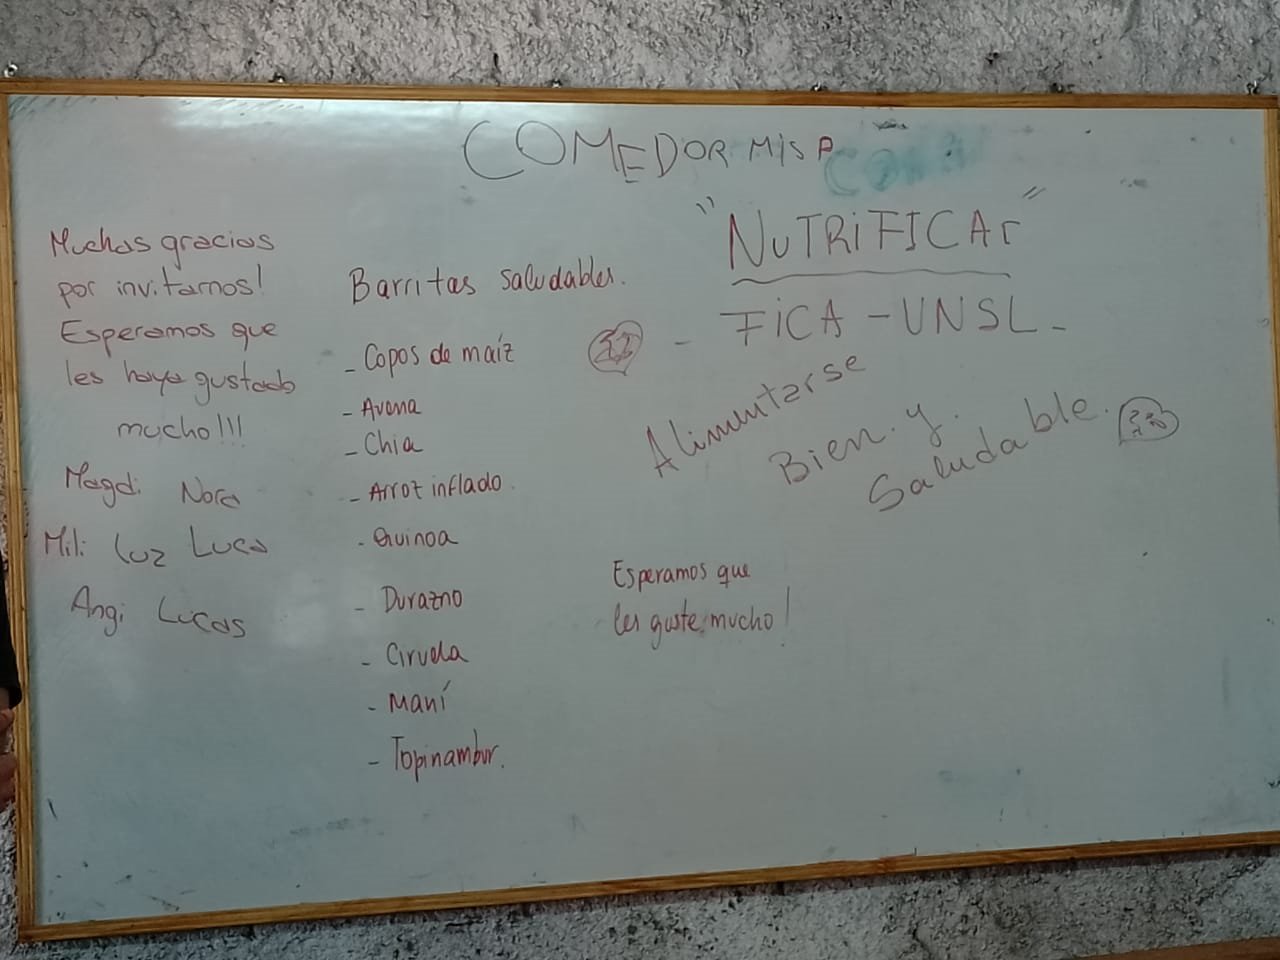 COMEDOR MIS P
"NUTRIFICAr"
- FICA - UNSL -
Alimentarse
Bien. y.
Saludable.
Muchas gracias
por invitarnos!
Esperamos que
les haya gustado
mucho!!!
Magdi Nora
Mili Luz Luca
Angi Lucas
Barritas saludables.
- Copos de maíz
- Avena
- Chia
- Arroz inflado
- Quinoa
- Durazno
- Ciruela
- Maní
- Topinambur.
Esperamos que
les guste mucho!